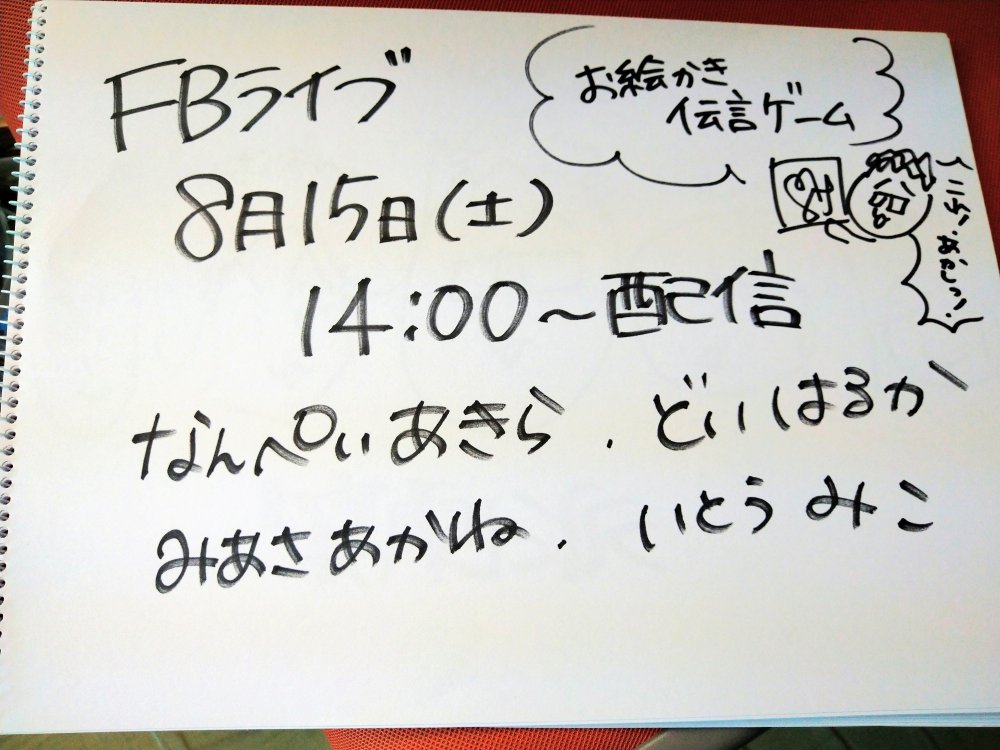 FBライブ
お絵かき
伝言ゲーム
8月15日(土)
14:00~配信
なんぺいあきら.どいはるか
みあさあかね.いとうみこ